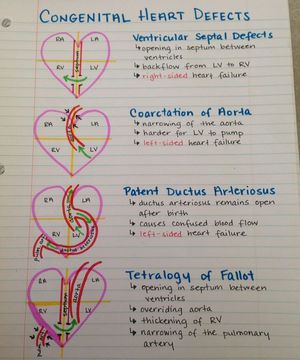 CONGENITAL HEART DEFECTS
RA LA
septum
RV LV
Ventricular Septal Defects
↳ opening in septum between
ventricles
↳ backflow from LV to RV
↳ right-sided heart failure
RA LA
aorta
RV LV
Coarctation of Aorta
↳ narrowing of the aorta
↳ harder for LV to pump
↳ left-sided heart failure
RA LA
RV LV
ductus arteriosus
Patent Ductus Arteriosus
↳ ductus arteriosus remains open
after birth
↳ causes confused blood flow
↳ left-sided heart failure
RA LA
septum
aorta
RV LV
Tetralogy of Fallot
↳ opening in septum between
ventricles
↳ overriding aorta
↳ thickening of RV
↳ narrowing of the pulmonary
artery